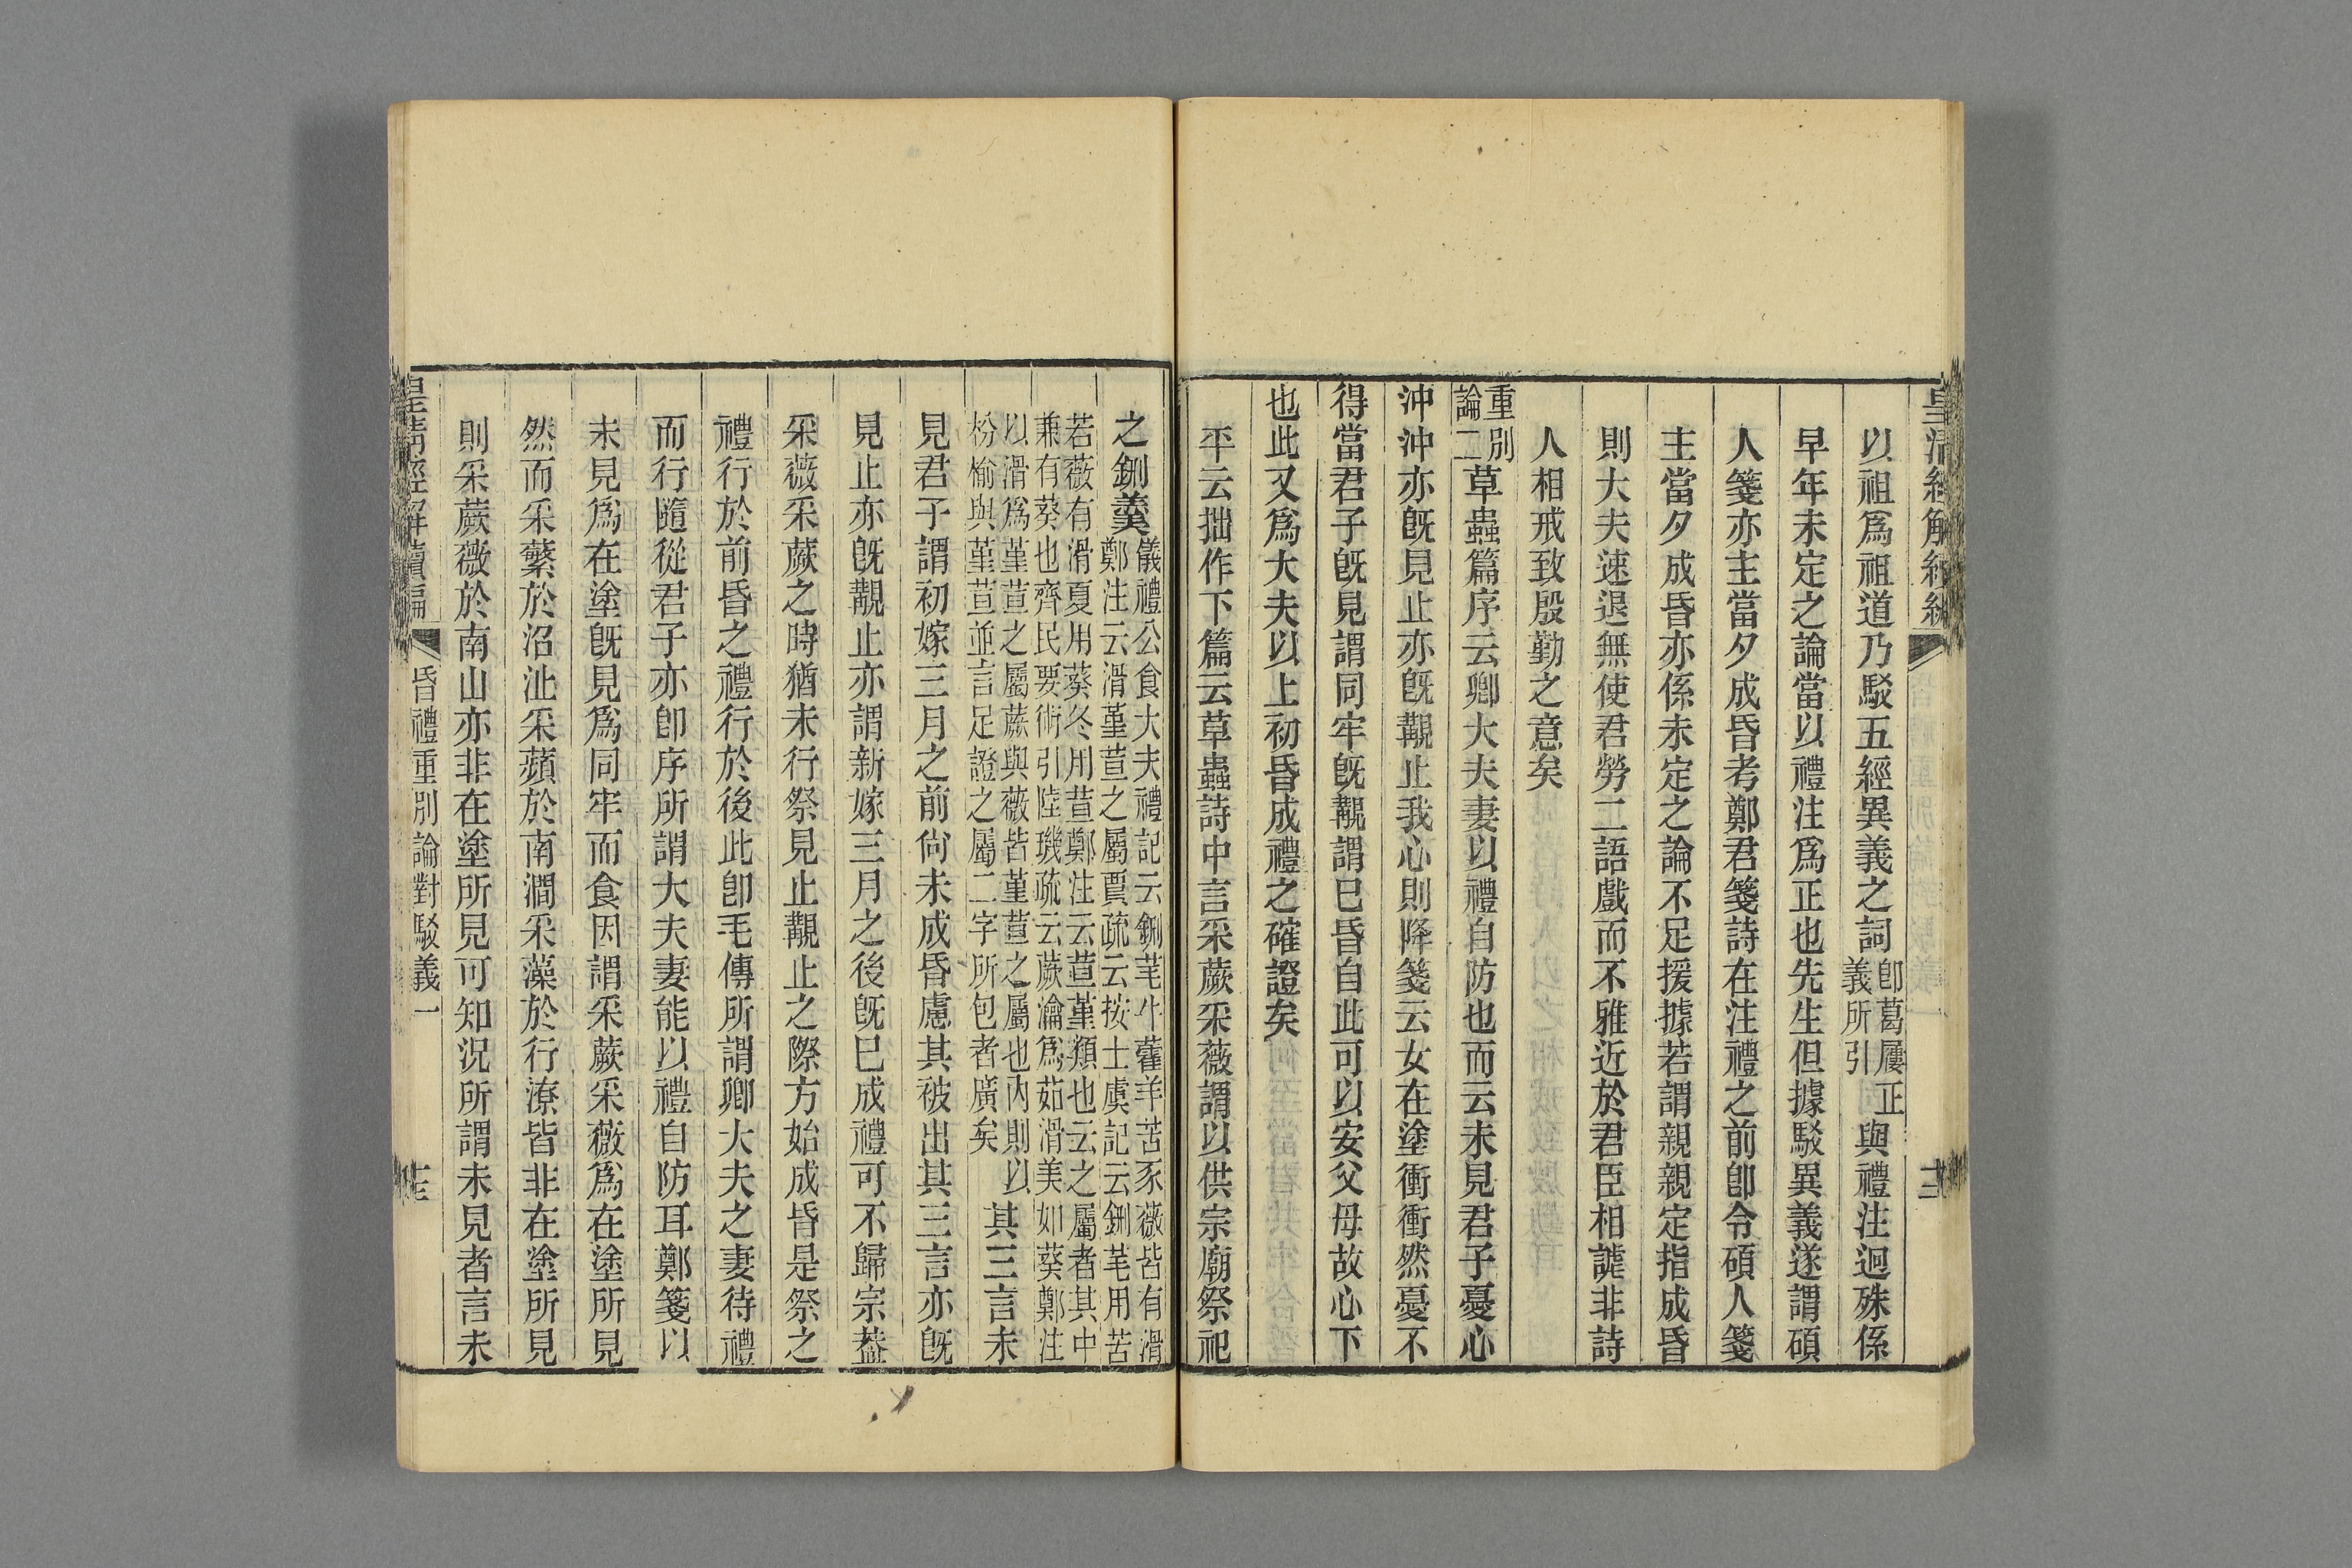 以祖爲祖道乃駁五經異義之詞卽葛屨正義所引與禮注迥殊係
早年未定之論當以禮注爲正也先生但據駁異義遂謂碩
人箋亦主當夕成昏考鄭君箋詩在注禮之前卽令碩人箋
主當夕成昏亦係未定之論不足援據若謂親親定指成昏
則大夫速退無使君勞二語戲而不雅近於君臣相謔非詩
人相戒致殷勤之意矣
重別論二草蟲篇序云卿大夫妻以禮自防也而云未見君子憂心
沖沖亦既見止亦既覯止我心則降箋云女在塗衝衝然憂不
得當君子既見謂同牢既覯謂已昏自此可以安父母故心下
也此又爲大夫以上初昏成禮之確證矣
平云拙作下篇云草蟲詩中言采蕨采薇謂以供宗廟祭祀
之鉶羹儀禮公食大夫禮記云鉶芼牛藿羊苦豕薇皆有滑
鄭注云滑堇荁之屬賈疏云按士虞記云鉶芼用苦
若薇有滑夏用葵冬用荁鄭注云荁堇類也云之屬者其中
兼有葵也齊民要術引陸璣疏云蕨瀹爲茹滑美如葵鄭注
以滑爲堇荁之屬蕨與薇皆堇荁之屬也內則以
枌榆與堇荁並言足證之屬二字所包者廣矣其三言未
見君子謂初嫁三月之前尙未成昏慮其被出其三言亦既
見止亦既覯止亦謂新嫁三月之後既已成禮可不歸宗葢
采薇采蕨之時猶未行祭見止覯止之際方始成昏是祭之
禮行於前昏之禮行於後此卽毛傳所謂卿大夫之妻待禮
而行隨從君子亦卽序所謂大夫妻能以禮自防耳鄭箋以
未見爲在塗既見爲同牢而食因謂采蕨采薇爲在塗所見
然而采蘩於沼沚采蘋於南澗采藻於行潦皆非在塗所見
則采蕨薇於南山亦非在塗所見可知況所謂未見者言未
皇淸經解續編 昏禮重別論對駁義一 十三